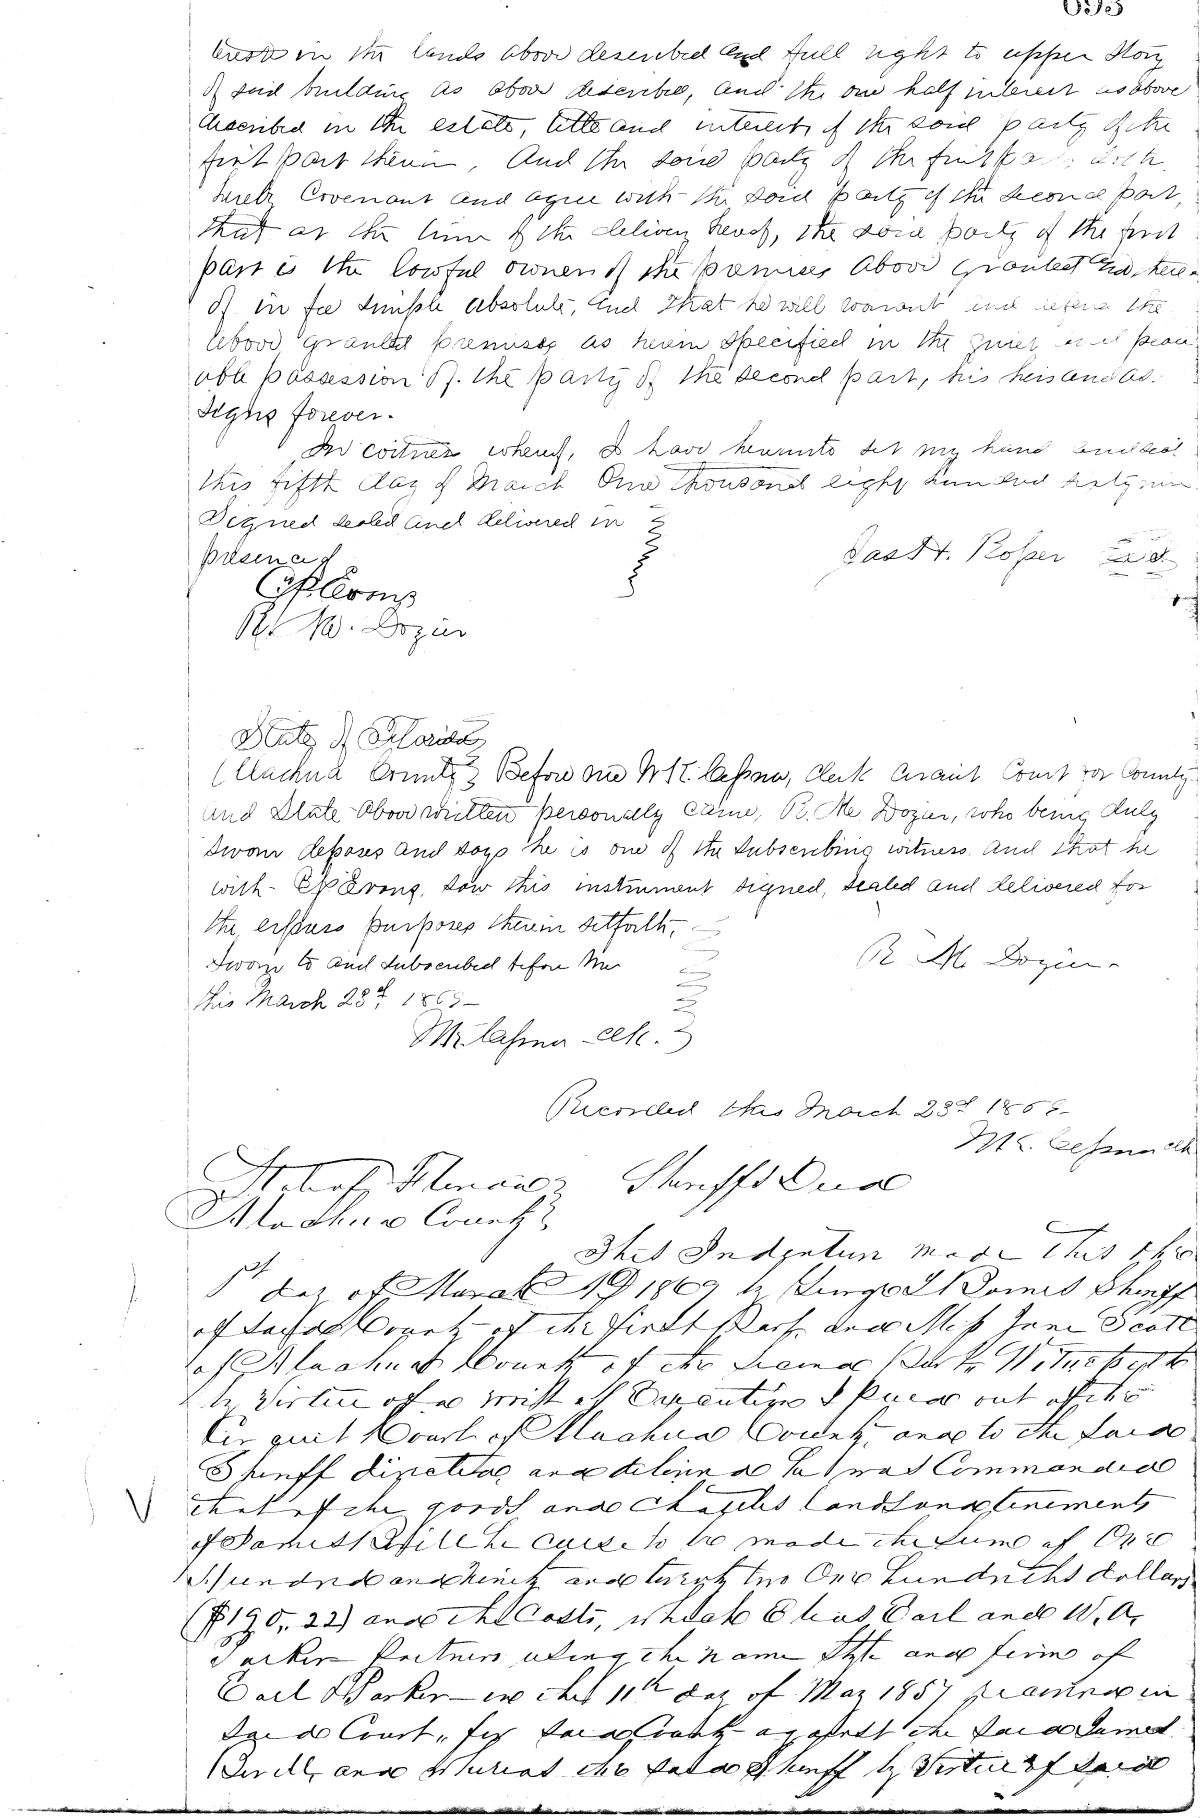 693
in the lands above described and full right to upper story
of said building as above described, and the one half interest as above
described in the estate, title and interest, of the said party of the
first part therein, And the said party of the first part doth
hereby Covenant and agree with the said party of the second part,
that at the time of the delivery hereof, the said party of the first
part is the lawful owner of the premises above granted and there
of in fee simple absolute, and that he will warrant and defend the
above granted premises as herein specified in the quiet and peace
able possession of the party of the second part, his heirs and as-
signs forever.
In witness whereof, I have hereunto set my hand and seal
this fifth day of March One thousand eight hundred sixty nine
Signed sealed and delivered in
presence of
Jas H. Roper
Evans
R. M. Dozier
State of Florida
Alachua County Before me W K. Cessna, clerk Circuit Court for County
and State above written personally came, R. M. Dozier, who being duly
sworn deposes and says he is one of the subscribing witness and that he
with Evans, saw this instrument signed, sealed and delivered for
the express purposes therein setforth,
Sworn to and subscribed before me
R M Dozier
this March 23d 1869
Cessna Clk.
Recorded this March 23d 1869
Cessna clk
State of Florida Sheriffs Deed
Alachua County
This Indenture made this the
1st day of March AD 1869 by Sheriff
of said County of the first Part, and Miss Jane Scott
of Alachua County of the Second Part, Witnesseth
by Virtue of a writ of Execution Issued out of the
Circuit Court of Alachua County, and to the said
Sheriff directed, and delivered he was Commanded
that of the goods and Chattles lands and tenements
of James he cause to be made the sum of One
Hundred and Ninety and twenty two One hundredths dollars
($190,,22) and the Costs, which Elias Earl and W. A.
Parker Partners using the name Style and firm of
Earl & Parker in the 11th day of May 1857 recovered in
said Court, for said County against the said James
and whereas the said Sheriff by Virtue of said